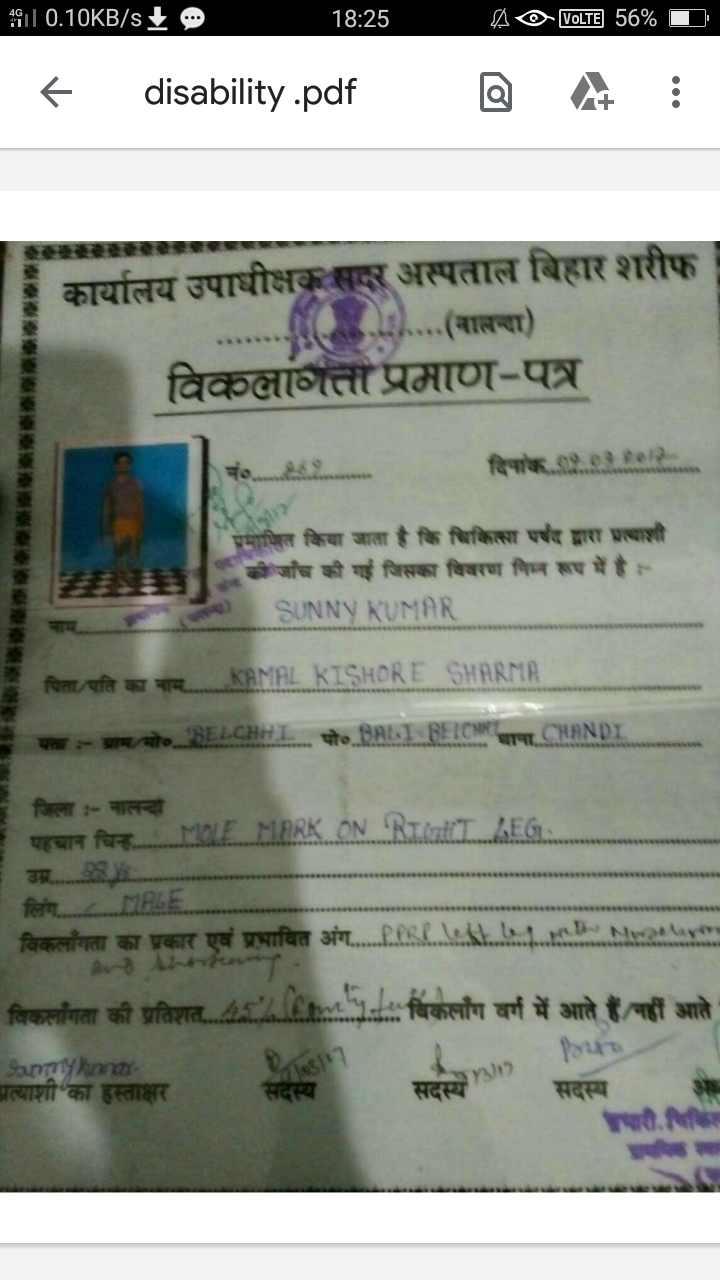 4G 0.10KB/s 18:25 VoLTE 56%
disability .pdf
कार्यालय उपाधीक्षक सदर अस्पताल बिहार शरीफ
......................(नालन्दा)
विकलांगता प्रमाण-पत्र
नं०.... दिनांक..09.03.2017
प्रमाणित किया जाता है कि चिकित्सा पर्षद द्वारा प्रत्याशी
की जाँच की गई जिसका विवरण निम्न रूप में है :-
नाम SUNNY KUMAR
पिता/पति का नाम KAMAL KISHORE SHARMA
पता :- ग्राम/मो० BELCHHI पो० BALI-BELCHHI थाना CHANDI
जिला :- नालन्दा
पहचान चिन्ह MOLE MARK ON RIGHT LEG.
उम्र 28 Yrs
लिंग MALE
विकलाँगता का प्रकार एवं प्रभावित अंग PPRP left leg with
and shortening.
विकलाँगता की प्रतिशत 45% विकलाँग वर्ग में आते हैं/नहीं आते
Sunny Kumar
प्रत्याशी का हस्ताक्षर सदस्य सदस्य सदस्य